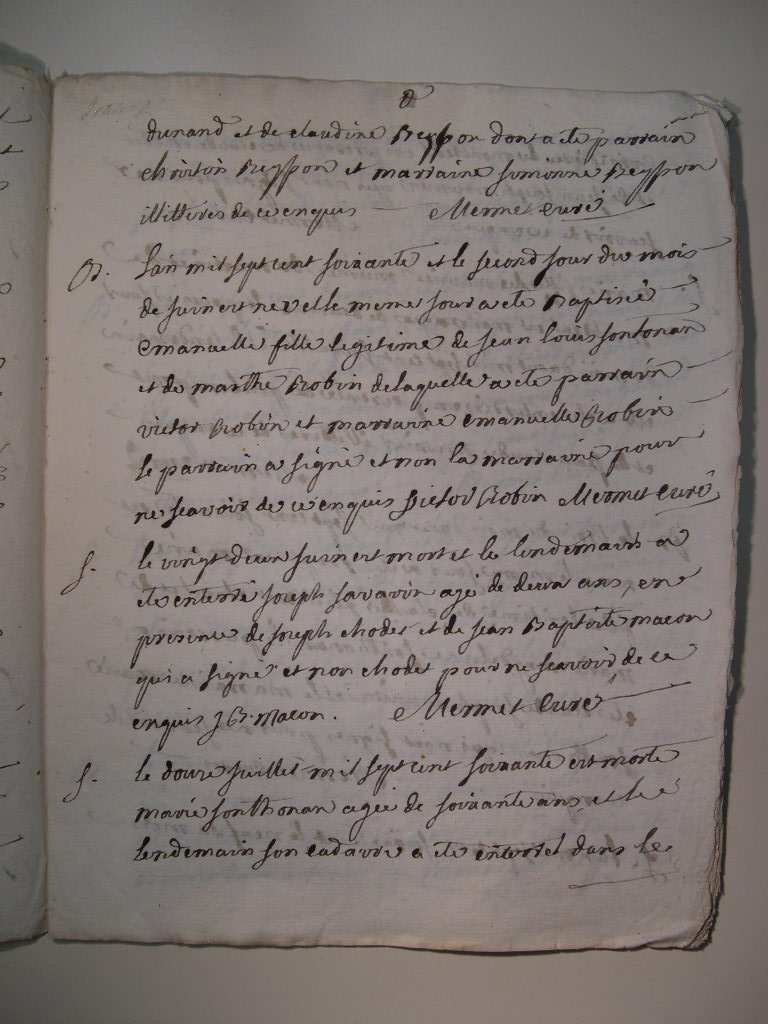 8
dunand et de claudine Reysson dont a ete parrain
christin Reysson et marraine simonne Reysson
illitteres de ce enquis Mermet curé
B. Lan mil sept cent soixante et le second jour du mois
de juin est ne et le meme jour a ete Baptisée
emanuelle fille legitime de jean louis sontonan
et de marthe Robin de laquelle a ete parrain
victor Robin et marraine emanuelle Robin
le parrain a signé et non la marraine pour
ne scavoir de ce enquis victor Robin Mermet curé
S. le vingt deux juin est mort et le lendemain a
ete enterré joseph savarin agé de deux ans, en
presence de joseph chodet et de jean Baptiste macon
qui a signé et non chodet pour ne scavoir de ce
enquis J B. Macon. Mermet curé
S. le douze juillet mil sept cent soixante est morte
marie sonthonan agée de soixante ans et le
lendemain son cadavre a ete enterré dans le